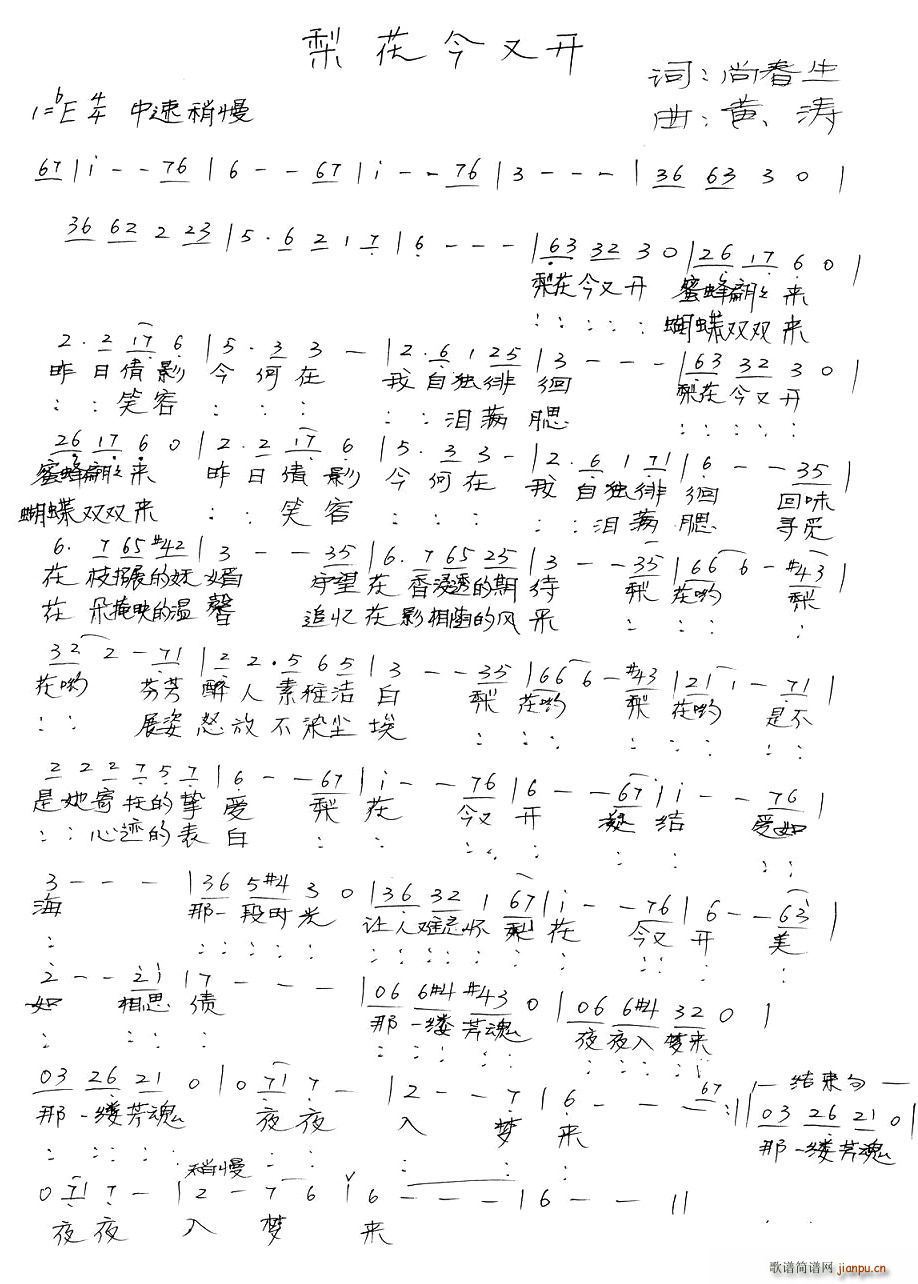 梨花今又开
词:尚春生
1=bE 4/4 中速稍慢
曲:黄涛
67|i - - 76|6 - - 67|i - - 76|3 - - -|36 63 3 0|
36 62 2 23|5· 6 2 1 7|6 - - -|63 32 3 0|26 17 6 0|
梨花今又开 蜜蜂翩翩来
: : : : : 蝴蝶双双来
2· 2 17 6|5· 3 3 -|2· 6 1 25|3 - - -|63 32 3 0|
昨日倩影 今何在 我自独徘徊 梨花今又开
: : 笑容 : : : : : 泪满腮 : : : : :
26 17 6 0|2· 2 17 6|5· 3 3 -|2· 6 1 71|6 - - 35|
蜜蜂翩翩来 昨日倩影 今何在 我自独徘徊 回味
蝴蝶双双来 : : 笑容 : : : : : 泪满腮 寻觅
6· 7 65 #42|3 - - 35|6· 7 65 25|3 - - 35|66 6 - #43|
在枝招展的妩媚 守望在香浸透的期待 梨花哟 梨
在朵掩映的温馨 追忆在影相随的风采 : : : :
32 2 - 71|2 2· 5 6 5|3 - - 35|66 6 - #43|21 1 - 71|
花哟 芬芳醉人素桩洁白 梨花哟 梨花哟 是不
: : 展姿怒放不染尘埃 : : : : : : : :
2 2 2 7 5 7|6 - - 67|i - - 76|6 - - 67|i - - 76|
是她寄托的挚爱 梨花 今又开 凝结 爱如
: : 心迹的表白 : : : : : : : : :
3 - - -|36 5#4 3 0|36 32 1 67|i - - 76|6 - - 63|
海 那一段时光 让人难忘怀 梨花 今又开 美
: : : : : : : : : : : : : : : : :
2 - - 21|7 - - -|06 6#4 #43 0|06 6#4 32 0|
如 相思债 那一缕芳魂 夜夜入梦来
: : : : : : : : : : : : : :
03 26 21 0|0 71 7 -|2 - - 7|6 - - - 67:||结束句 03 26 21 0|
那一缕芳魂 夜夜 入 梦来 那一缕芳魂
: : : : : : : : : :
稍慢
0 71 7 -|2 - 7 6|6 - - -|6 - - ||
夜夜 入 梦 来
歌谱简谱网
jianpu.cn